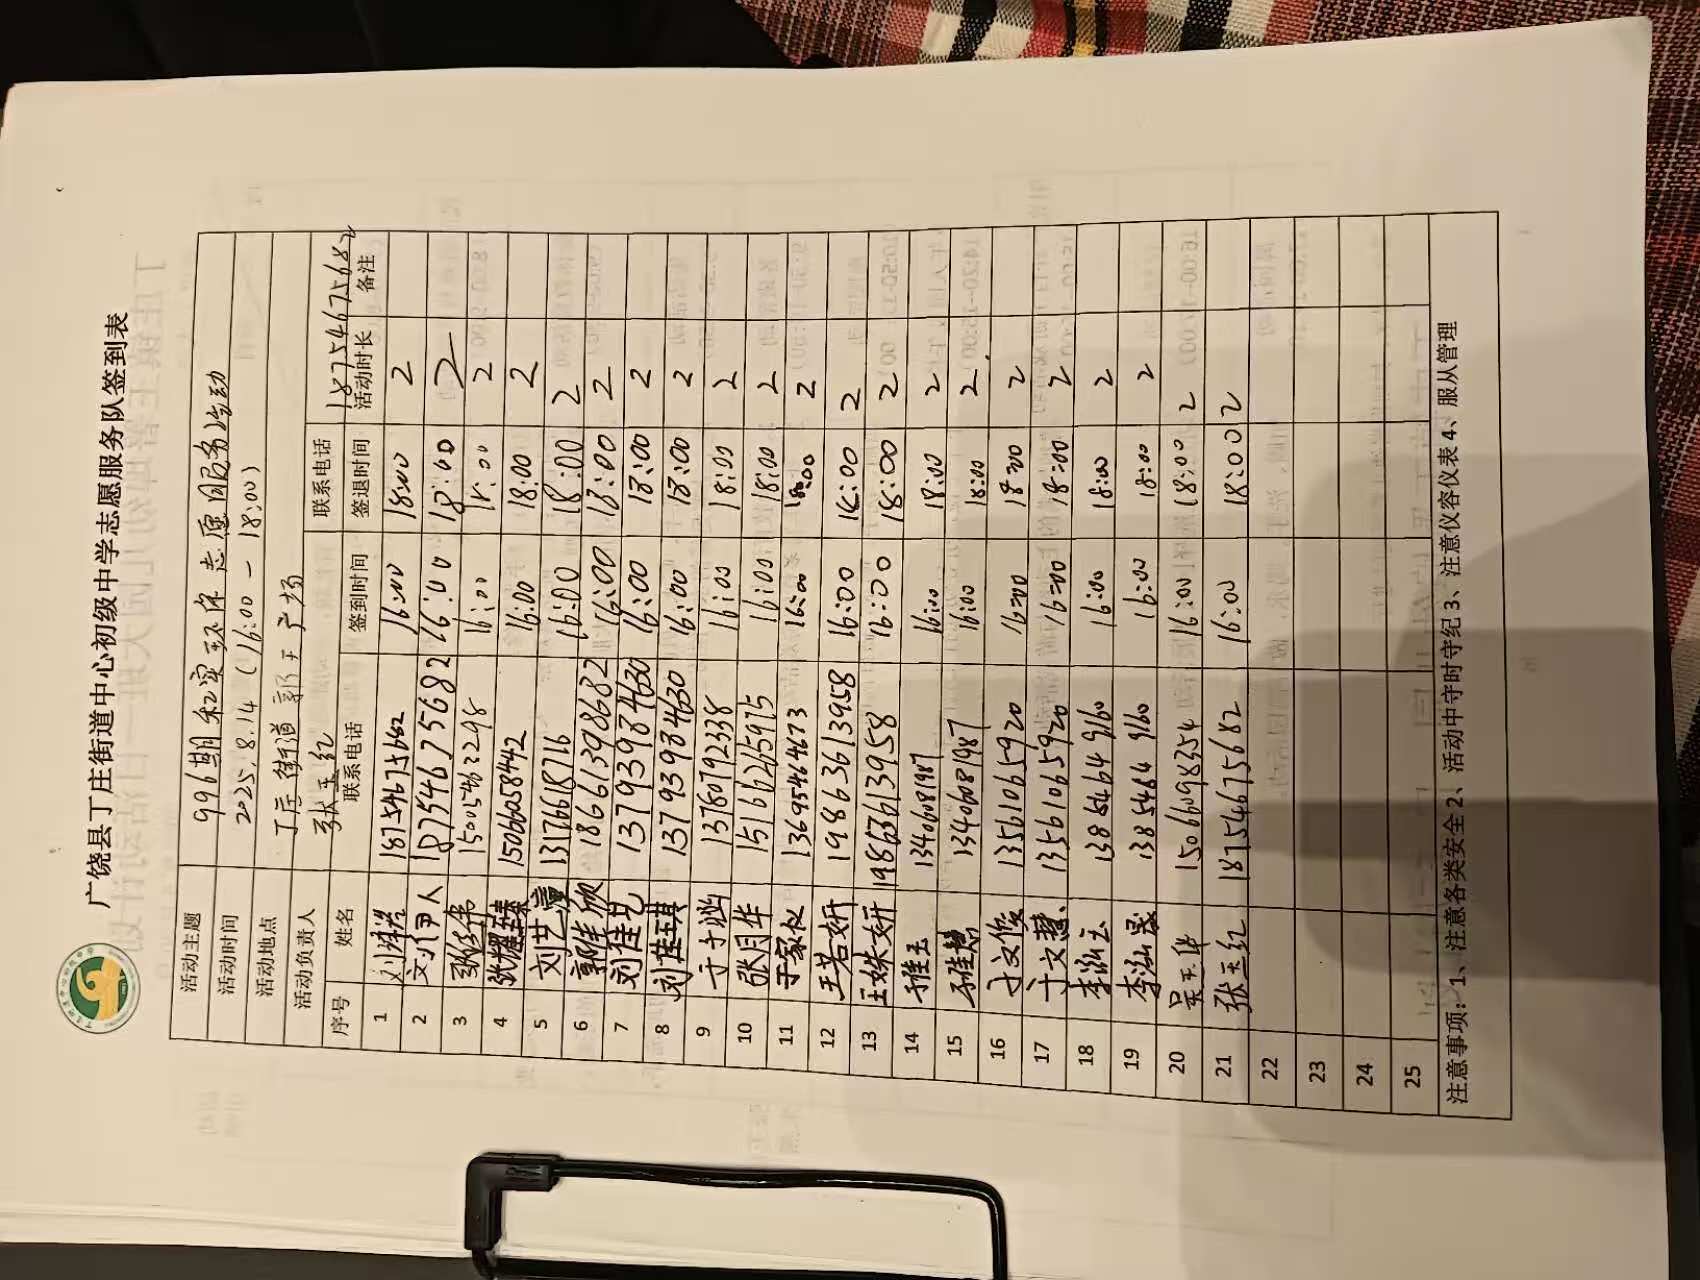 广饶县丁庄街道中心初级中学志愿服务队签到表
活动主题 996期和实环保志愿服务活动
活动时间 2025.8.14 (16:00-18:00)
活动地点 丁庄街道郭王广场
活动负责人 张玉红 联系电话 18754675682
序号 姓名 联系电话 签到时间 签退时间 活动时长 备注
1 18754675682 16:00 18:00 2
2 刘伊人 18754675682 16:00 18:00 2
3 15005462298 16:00 18:00 2
4 张耀臻 15066058442 16:00 18:00 2
5 刘艺 13176618716 16:00 18:00 2
6 郭佳欣 18661398682 16:00 18:00 2
7 刘佳艺 13793934630 16:00 18:00 2
8 刘佳琪 13793934630 16:00 18:00 2
9 于 13780792338 16:00 18:00 2
10 张月华 15166265975 16:00 18:00 2
11 于家仪 13695464673 16:00 18:00 2
12 王若妍 19863613958 16:00 18:00 2
13 王姝妍 19863613958 16:00 18:00 2
14 13406081987 16:00 18:00 2
15 13406081987 16:00 18:00 2
16 于文俊 13561065920 16:00 18:00 2
17 于文慧 13561065920 16:00 18:00 2
18 李泓云 13854649160 16:00 18:00 2
19 李泓晟 16:00 18:00 2
20 吴玉华 15066098354 16:00 18:00 2
21 张玉红 18754675682 16:00 18:00 2
22
23
24
25
注意事项：1、注意各类安全 2、活动中守时守纪 3、注意仪容仪表 4、服从管理